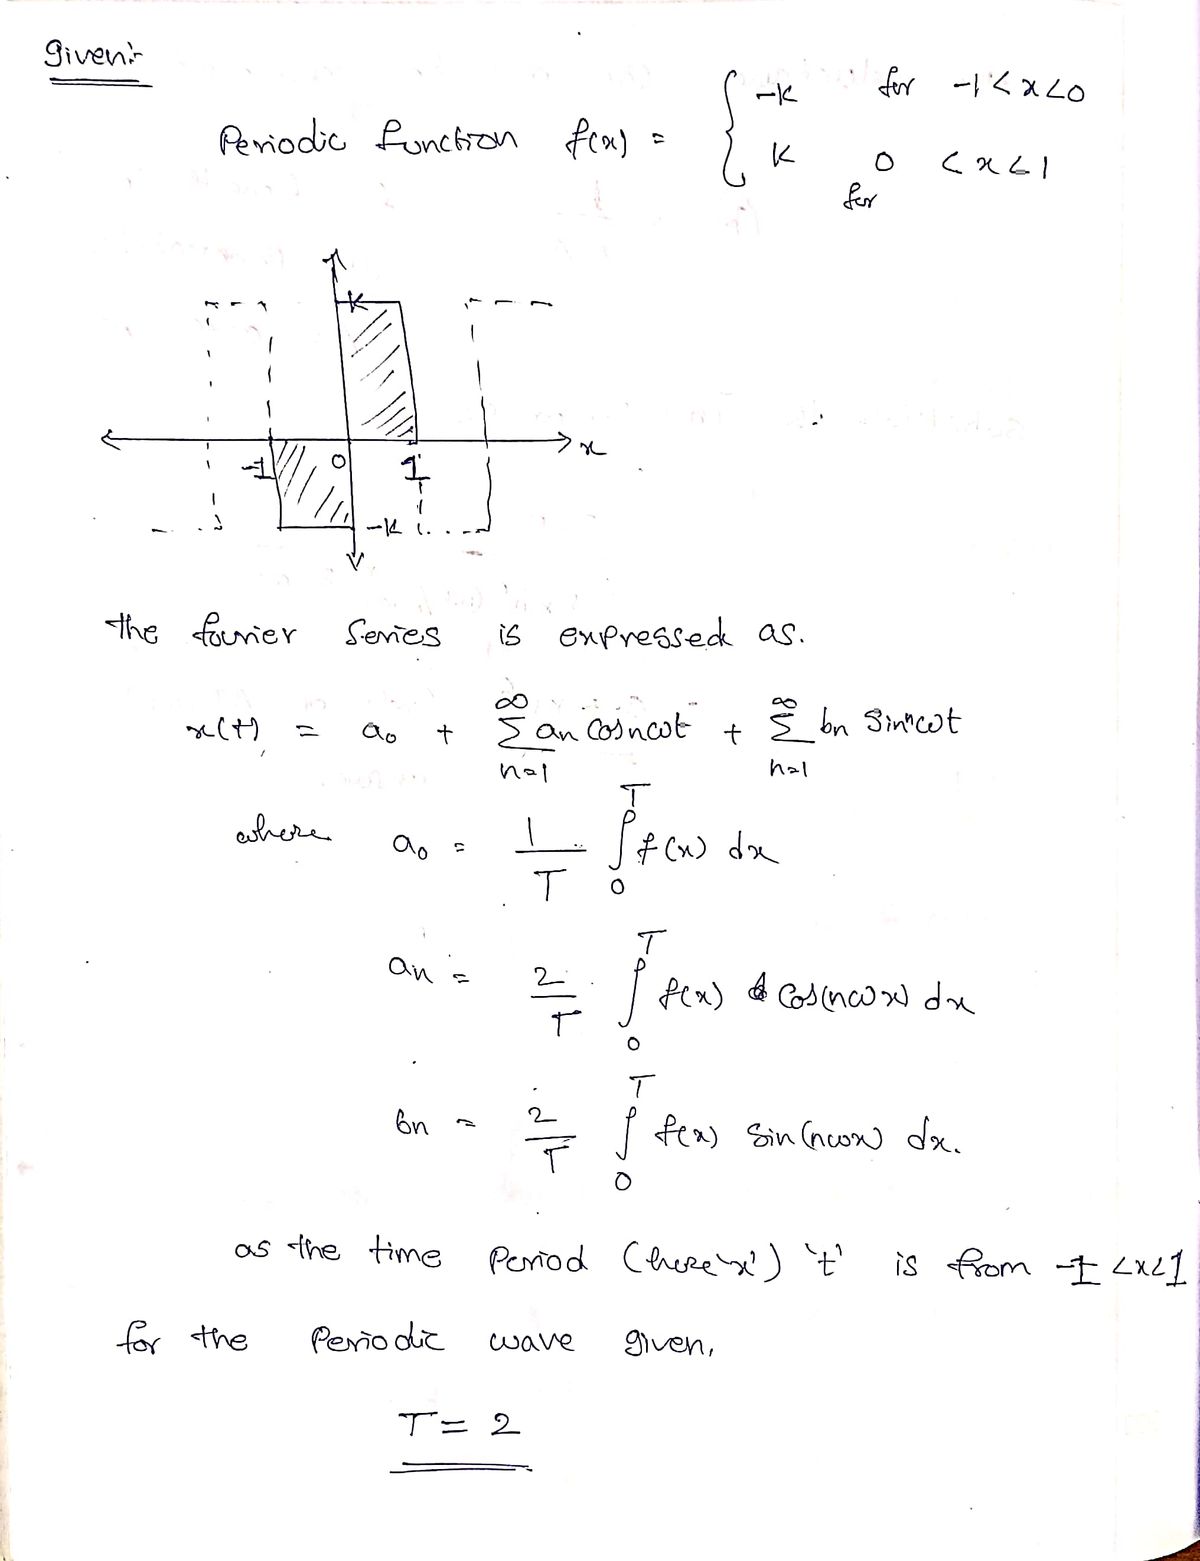 Given:-
Periodic function f(x) = { -K for -1 < x < 0
K for 0 < x < 1
K
-1 0 1 x
-K
the fourier Series is expressed as.
x(t) = a₀ + ∞ Σ n=1 an Cosnωt + ∞ Σ n=1 bn Sinnωt
where a₀ = 1/T ∫₀ᵀ f(x) dx
an = 2/T ∫₀ᵀ f(x) Cos(nωx) dx
bn = 2/T ∫₀ᵀ f(x) Sin(nωx) dx.
as the time Period (here 'x') 't' is from -1 < x < 1
for the Periodic wave given,
T = 2